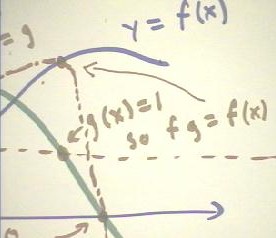 y = f(x)
= g
g(x)=1
so fg = f(x)